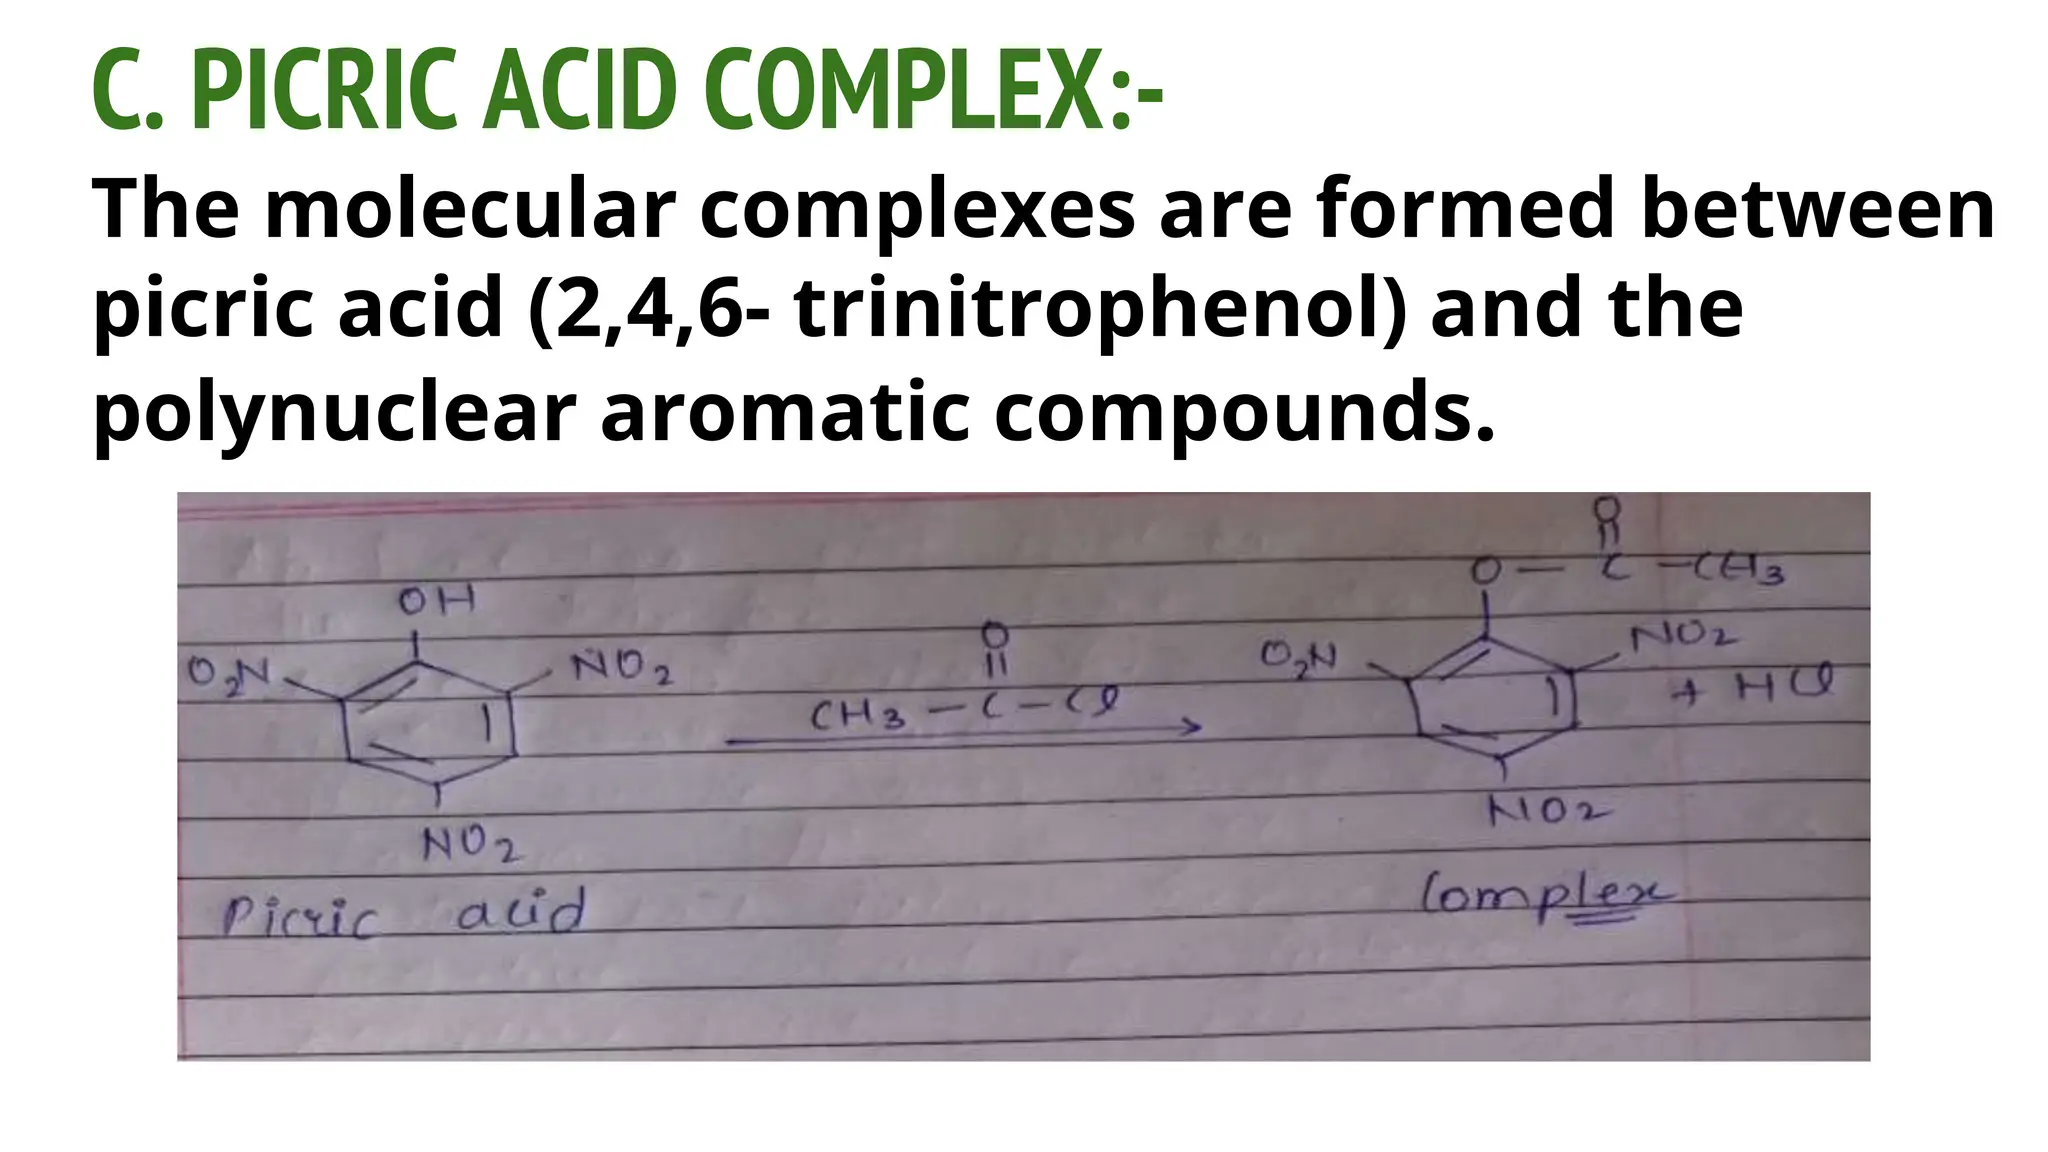 C. PICRIC ACID COMPLEX:-
The molecular complexes are formed between
picric acid (2,4,6- trinitrophenol) and the
polynuclear aromatic compounds.
O
O — C — CH3
OH
O
O2N NO2
O2N NO2
CH3 — C — Cl
+ HCl
NO2
NO2
Picric acid
Complex